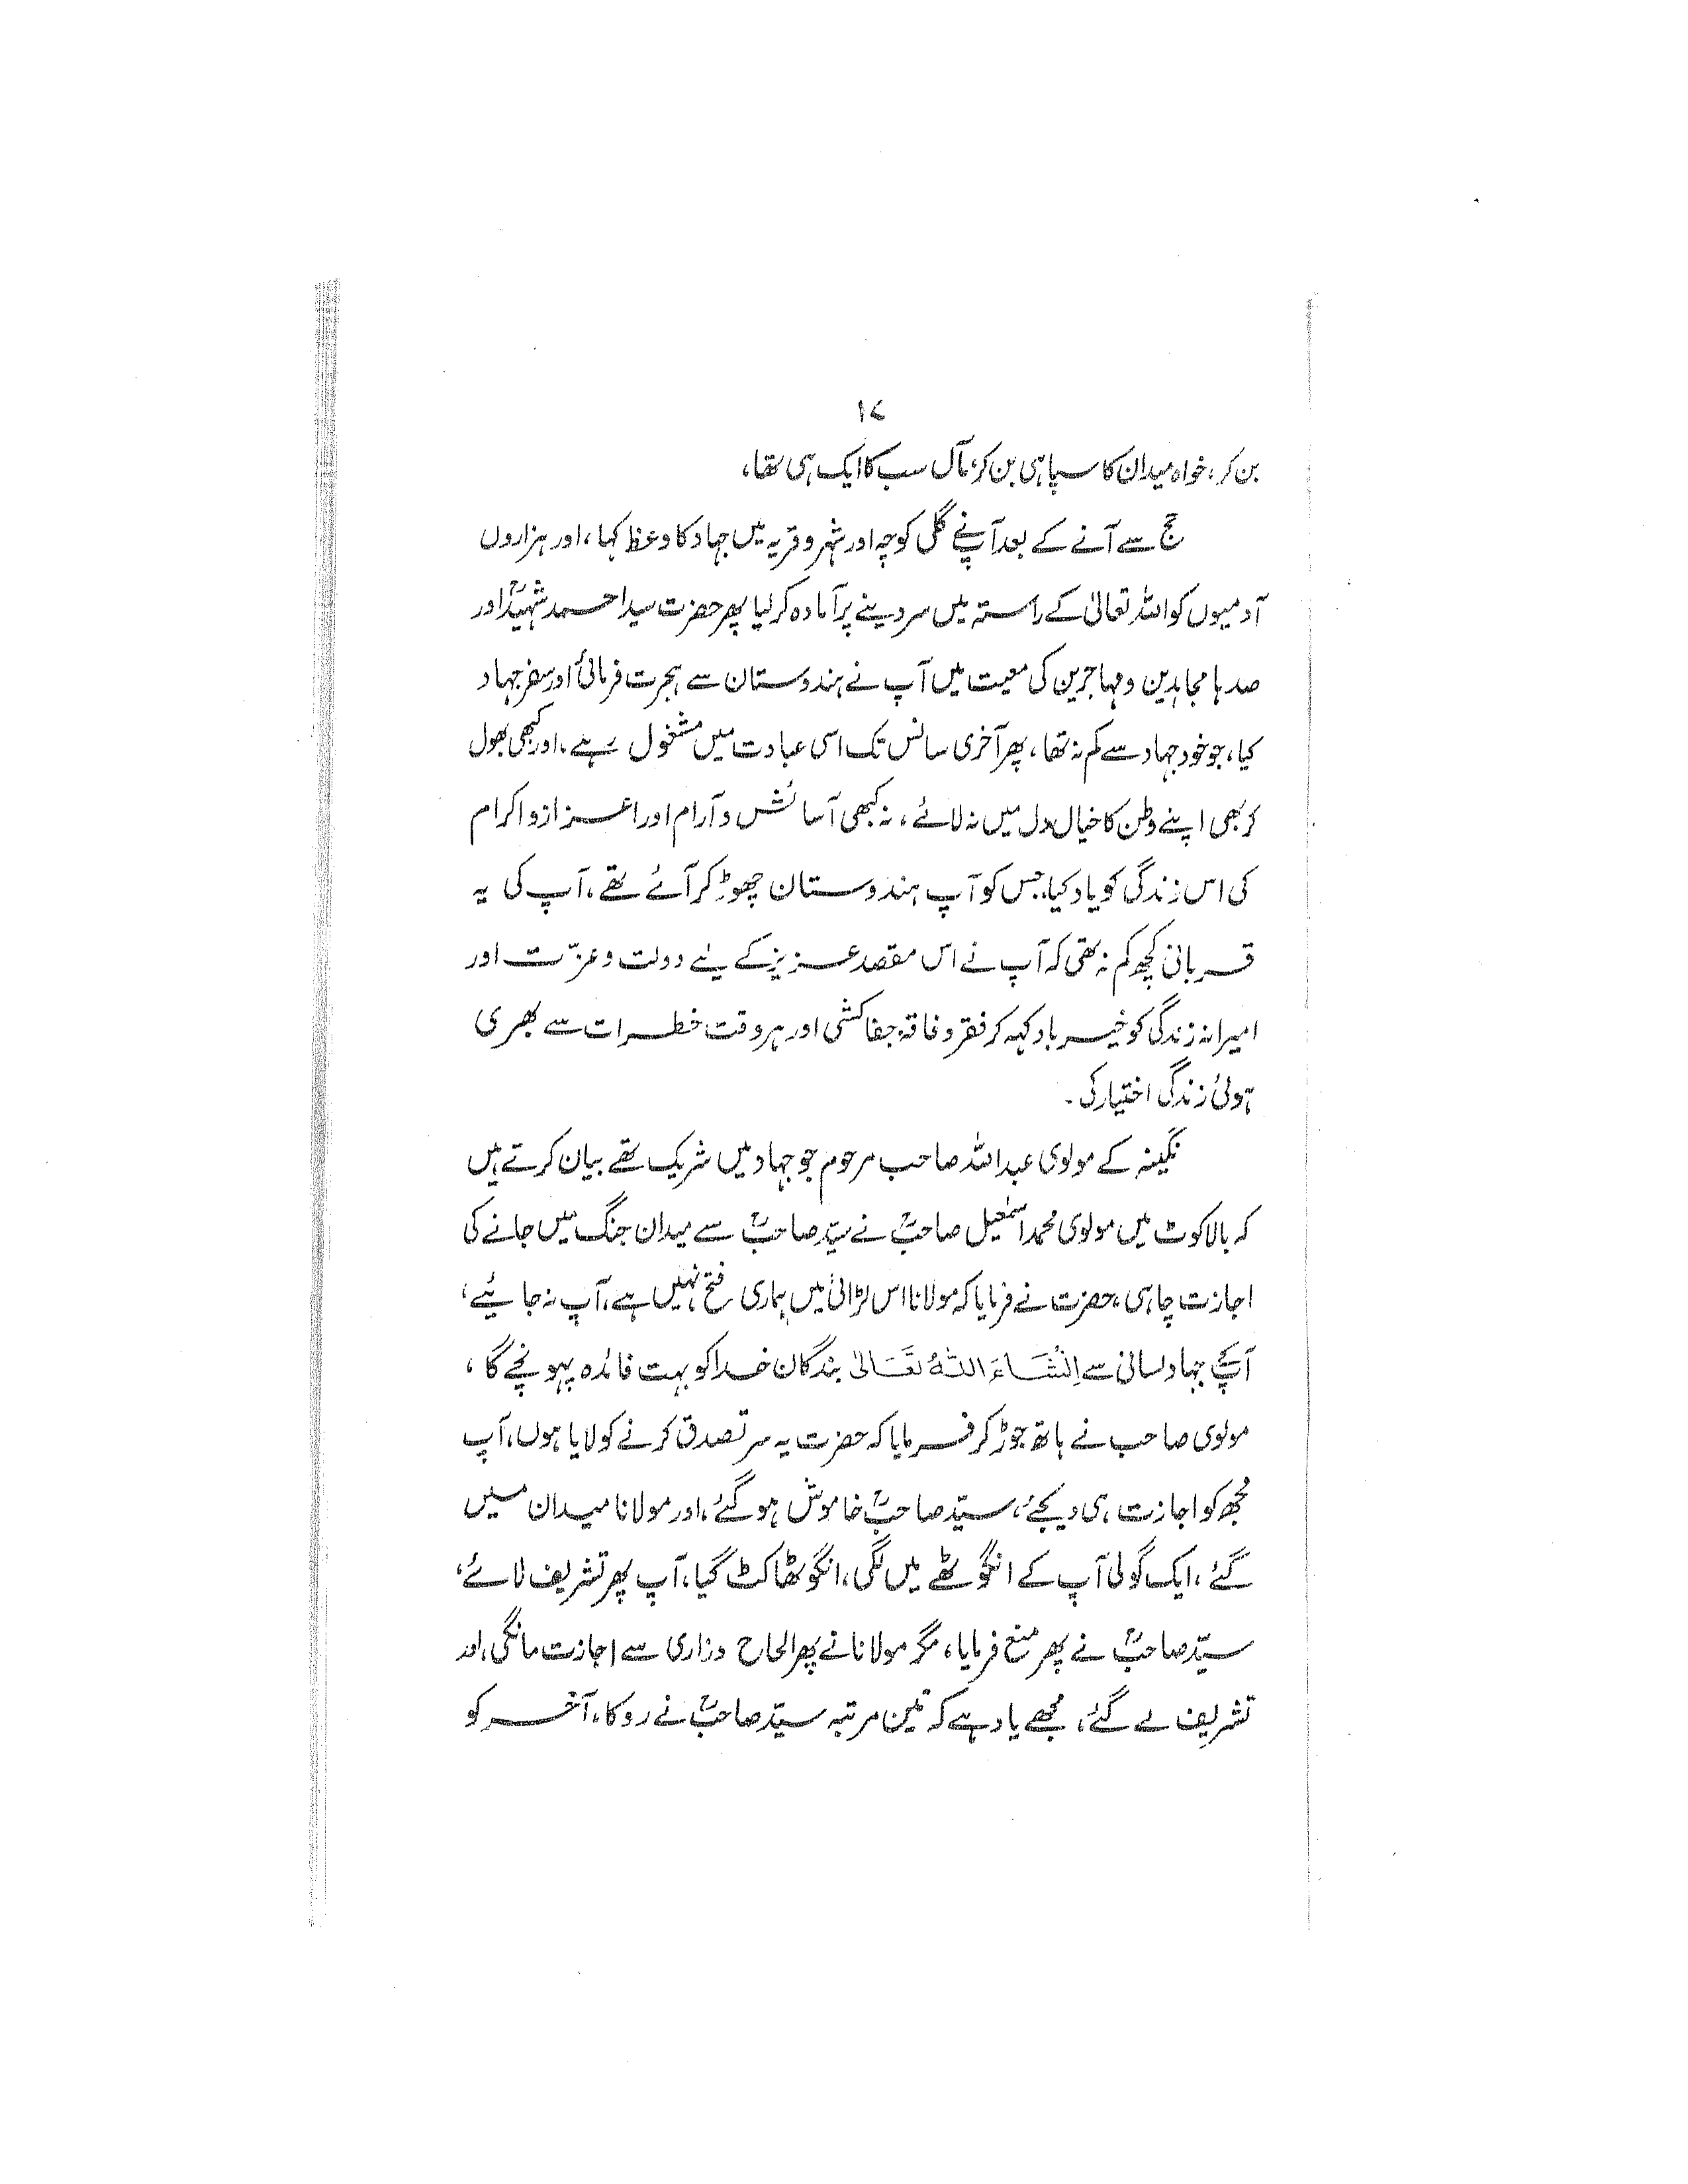 ۱۷
بن کر، خواہ میدان کا سپاہی بن کر، مآل سب کا ایک ہی تھا،
حج سے آنے کے بعد آپنے گلی کوچہ اور شہر و قریہ میں جہاد کا وعظ کہا، اور ہزاروں
آدمیوں کو اللہ تعالیٰ کے راستہ میں سر دینے پر آمادہ کر لیا پھر حضرت سید احمد شہیدؒ اور
صدہا مجاہدین و مہاجرین کی معیت میں آپ نے ہندوستان سے ہجرت فرمائی اور سفر جہاد
کیا، جو خود جہاد سے کم نہ تھا، پھر آخری سانس تک اسی عبادت میں مشغول رہے، اور کبھی بھول
کر بھی اپنے وطن کا خیال دل میں نہ لائے، نہ کبھی آسائش و آرام اور اعزاز و اکرام
کی اس زندگی کو یاد کیا، جس کو آپ ہندوستان چھوڑ کر آئے تھے، آپ کی یہ
قربانی کچھ کم نہ تھی کہ آپ نے اس مقصد عزیز کے لیے دولت و عزّت اور
امیرانہ زندگی کو خیرباد کہہ کر فقر و فاقہ، جفاکشی اور ہر وقت خطرات سے بھری
ہوئی زندگی اختیار کی۔
نگینہ کے مولوی عبد اللہ صاحب مرحوم جو جہاد میں شریک تھے بیان کرتے ہیں
کہ بالاکوٹ میں مولوی محمد اسمٰعیل صاحبؒ نے سیّد صاحبؒ سے میدان جنگ میں جانے کی
اجازت چاہی، حضرت نے فرمایا کہ مولانا اس لڑائی میں ہماری فتح نہیں ہے، آپ نہ جائیے،
آپکے جہاد لسانی سے اِنْشَاءَ اللہُ تَعَالیٰ بندگان خدا کو بہت فائدہ پہونچے گا،
مولوی صاحب نے ہاتھ جوڑ کر فرمایا کہ حضرت یہ سر تصدق کرنے کو لایا ہوں، آپ
مجھ کو اجازت ہی دیجئے، سیّد صاحبؒ خاموش ہو گئے، اور مولانا میدان میں
گئے، ایک گولی آپ کے انگوٹھے میں لگی، انگوٹھا کٹ گیا، آپ پھر تشریف لائے،
سیّد صاحبؒ نے پھر منع فرمایا، مگر مولانا نے پھر الحاح وزاری سے اجازت مانگی، اور
تشریف لے گئے، مجھے یاد ہے کہ تین مرتبہ سیّد صاحبؒ نے روکا، آخر کو